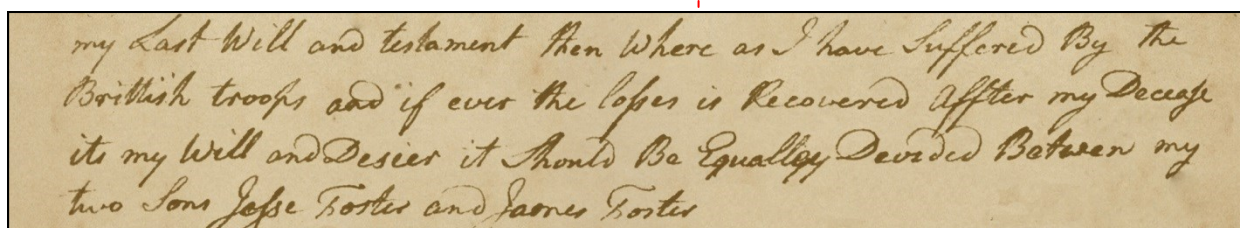 my Last Will and testament then Where as I have Suffered By the
Brittish troops and if ever the losses is Recovered Affter my Decease
its my Will and Desier it Should Be Equalley Devided Betwen my
two Sons Jesse Foster and James Foster